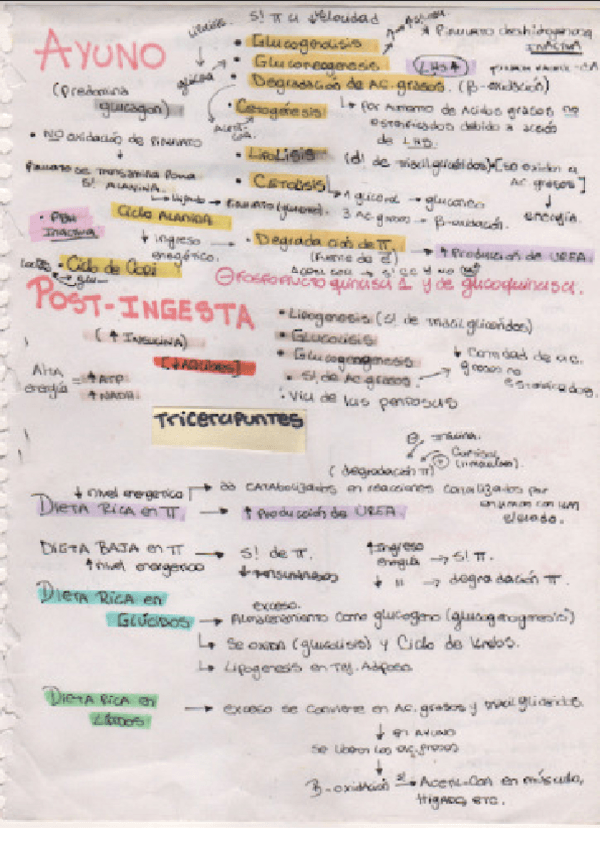 AYUNO
(Predomina glucagon)
S! π a ↓ velocidad
• Glucogenolisis
• Gluconeogenesis
Piruvato deshidrogenasa
INACTIVA
• Degradación de AC. grasos. (β-oxidación)
↳ por aumento de Acidos grasos no
esterificados debido a acción
de LHS.
• Cetogénesis
• Lipolisis (d! de triacilglicéridos) [se oxidan a
AC grasos]
energía.
• Cetolisis
1 glicerol → glucaneo
3 AC. grasos → β-oxidación.
• NO oxidación de PIRUVATO
↓
piruvato se transamina para
S! ALANINA.
Ciclo ALANINA
• PDH
INACTIVA
↓ ingreso
energético.
• Degradación de π.
↑ Producción de UREA.
• Ciclo de Cori
⊖ FOSFOFRUCTOquinasa 1 y de glucoquinasa.
POST-INGESTA
(↑ INSULINA)
• Lipogenesis (S! de triacilglicéridos)
• Glucolisis
• Glucogenogenesis
• S! de AC grasos.
↓ Cantidad de ac.
grasos no
esterificados.
• Vía de las pentosas
Alta
energía = ↑ ATP
↑ NADH.
Tricerapuntes
(degradación π)
↓ nivel energetico
DIETA RICA en π.
→ aa CATAbolizados en reacciones catalizadas por
→ ↑ Producción de UREA
DIETA BAJA en π → S! de π.
↑ nivel energetico
↑ Ingreso
energía → S! π.
↓ " → degradación π.
DIETA RICA en
GLÚCIDOS
exceso.
→ Almacenamiento como glucogeno (glucogenogenesis)
↳ Se oxida (glucolisis) y Ciclo de Krebs.
↳ Lipogenesis en Tej. Adiposo
DIETA RICA en
LÍPIDOS
→ exceso se convierte en AC. grasos y triacilgliceridos.
↓ en AYUNO
Se liberan los ac. grasos
↓
β-oxidación S! → Acetil-CoA en músculo,
Hígado, etc.